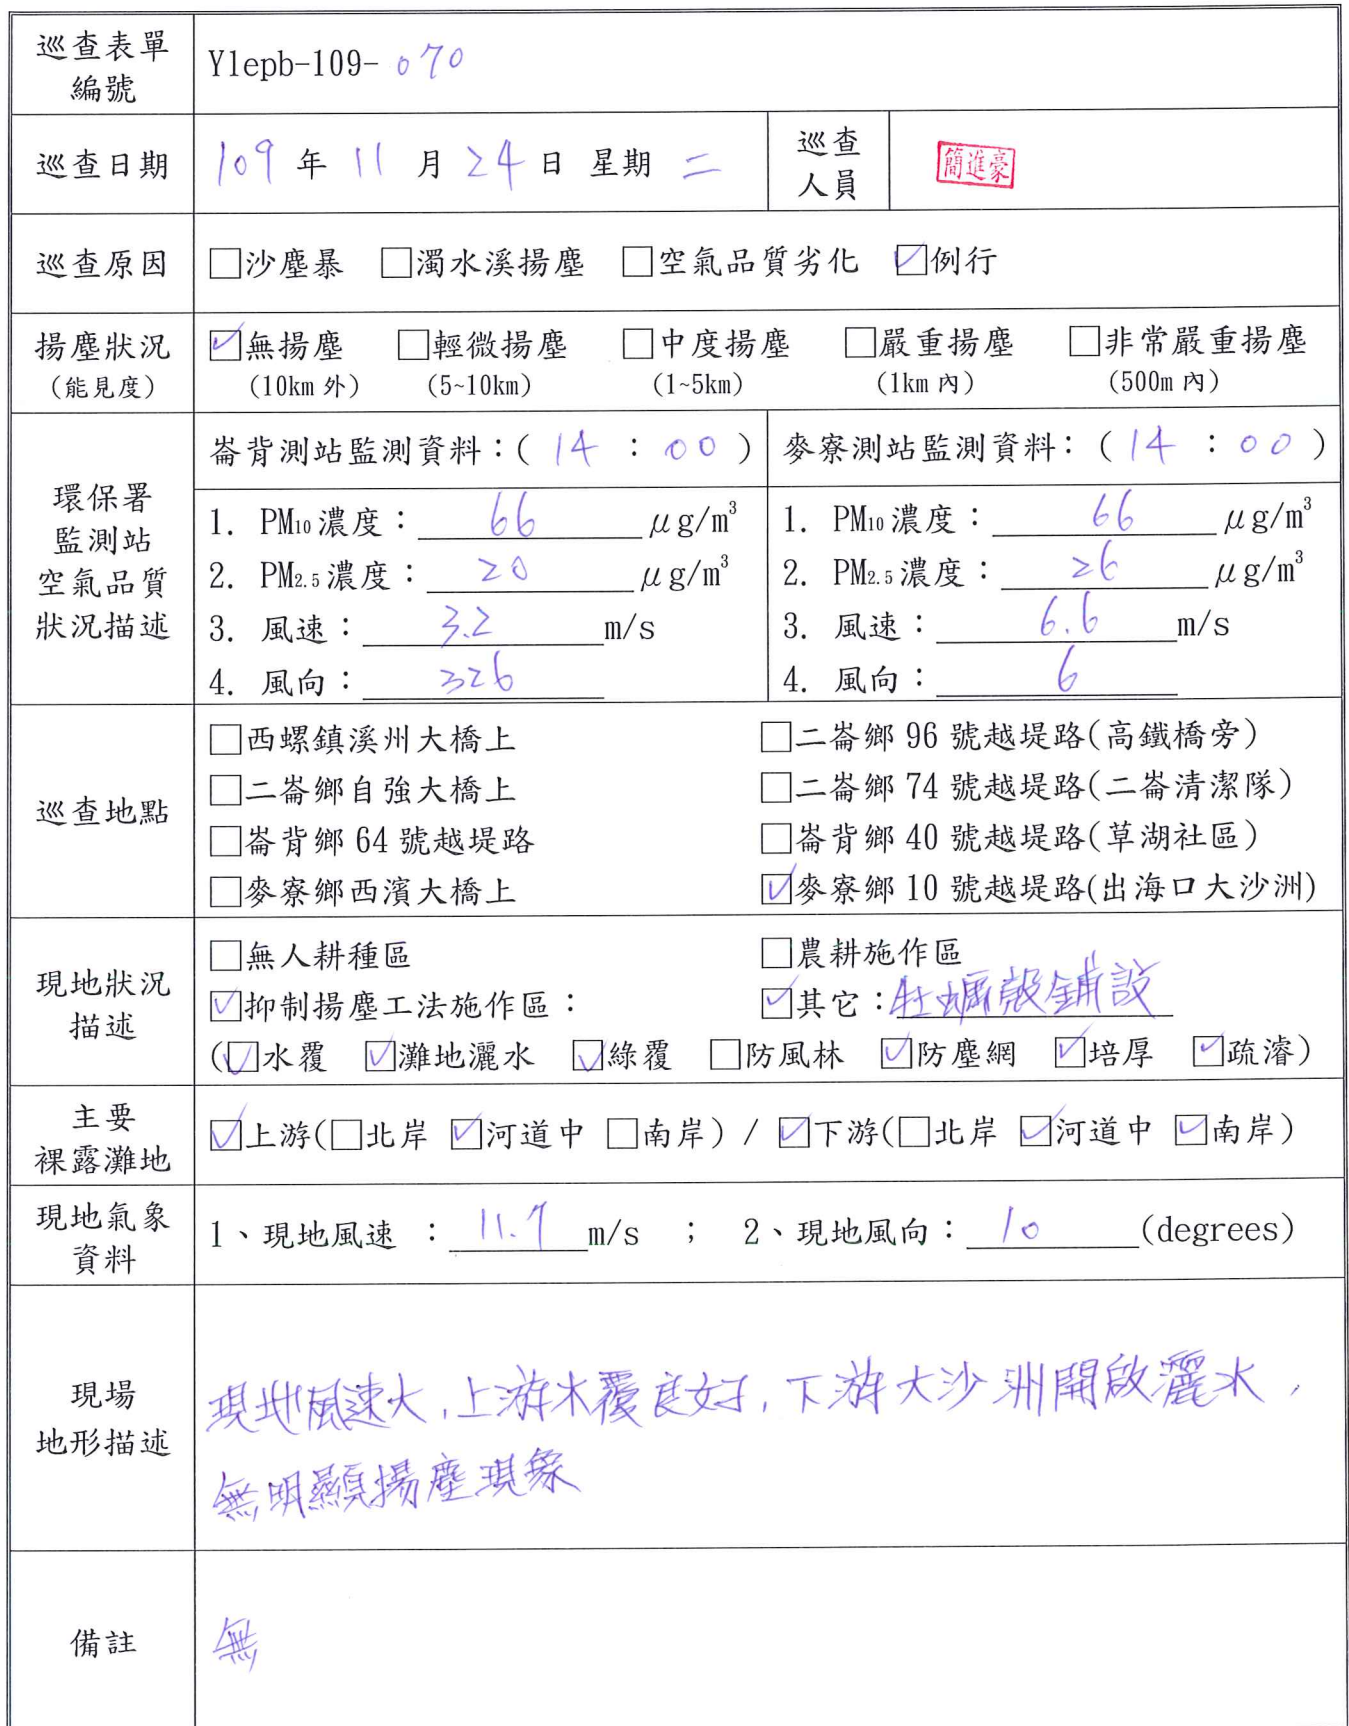 巡查表單
編號
Ylepb-109-070
巡查日期
109年11月24日 星期二
巡查
人員
簡進豪
巡查原因
□沙塵暴 □濁水溪揚塵 □空氣品質劣化 ☑例行
揚塵狀況
(能見度)
☑無揚塵 □輕微揚塵 □中度揚塵 □嚴重揚塵 □非常嚴重揚塵
(10km 外) (5~10km) (1~5km) (1km 內) (500m 內)
環保署
監測站
空氣品質
狀況描述
崙背測站監測資料：( 14 : 00 )
1. PM10濃度：66 μg/m³
2. PM2.5濃度：20 μg/m³
3. 風速：3.2 m/s
4. 風向：326
麥寮測站監測資料：( 14 : 00 )
1. PM10濃度：66 μg/m³
2. PM2.5濃度：26 μg/m³
3. 風速：6.6 m/s
4. 風向：6
巡查地點
□西螺鎮溪州大橋上 □二崙鄉 96 號越堤路(高鐵橋旁)
□二崙鄉自強大橋上 □二崙鄉 74 號越堤路(二崙清潔隊)
□崙背鄉 64 號越堤路 □崙背鄉 40 號越堤路(草湖社區)
□麥寮鄉西濱大橋上 ☑麥寮鄉 10 號越堤路(出海口大沙洲)
現地狀況
描述
□無人耕種區 □農耕施作區
☑抑制揚塵工法施作區： ☑其它：牡蠣殼鋪設
(☑水覆 ☑灘地灑水 ☑綠覆 □防風林 ☑防塵網 ☑培厚 ☑疏濬)
主要
裸露灘地
☑上游(□北岸 ☑河道中 □南岸) / ☑下游(□北岸 ☑河道中 ☑南岸)
現地氣象
資料
1、現地風速 ：11.7 m/s ； 2、現地風向：10 (degrees)
現場
地形描述
現地風速大,上游水覆良好,下游大沙洲開啟灑水,
無明顯揚塵現象
備註
無